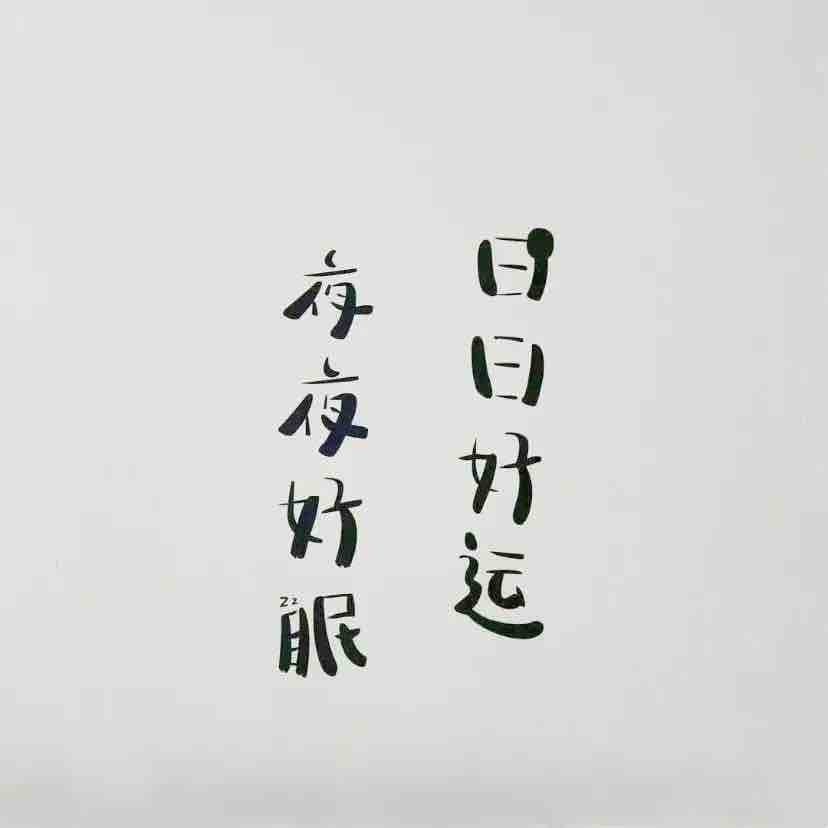 日日好运
夜夜好眠
zz